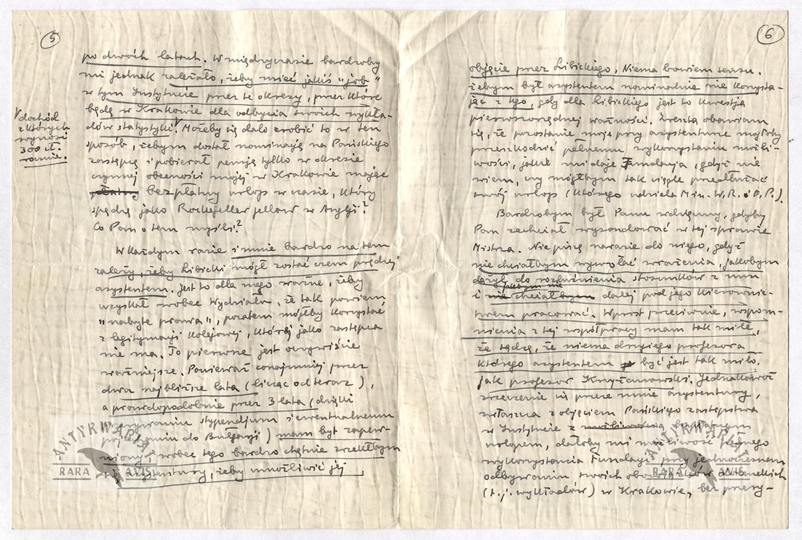 5
po dwóch latach. W międzyczasie bardzoby
mi jednak zależało, żeby mieć jakiś "job"
w tym Instytucie przez te okresy, przez które
będę w Krakowie dla odbycia swoich wykła-
dów statystyki. Możeby się dało zrobić to w ten
sposób, żebym dostał nominację na Pańskiego
zastępcę i pobierał pensję tylko w okresie
czynnej obecności mojej w Krakowie mając
bezpłatny urlop w czasie, który
spędzę jako Rockefeller fellow w Anglji?
Co Pan o tem myśli?
dochód
z których
wynosi
300 zł.
rocznie.
W każdym razie i mnie bardzo na tem
zależy, żeby Libicki mógł zostać czem prędzej
asystentem. Jest to dla niego ważne, żeby
uzyskał wobec Wydziału, że tak powiem,
"nabyte prawa", pozatem mógłby korzystać
z legitymacji kolejowej, której jako zastępca
nie ma. To pierwsze jest oczywiście
ważniejsze. Ponieważ conajmniej przez
dwa najbliższe lata (licząc od teraz),
a prawdopodobnie przez 3 lata (dzięki
stypendjum i ewentualnemu
do Bułgarji) mam być zapew-
niony, wobec tego bardzo chętnie zrzekłbym
się asystentury, żeby umożliwić jej
6
objęcie przez Libickiego. Niema bowiem sensu,
żebym był asystentem nominalnie nie korzysta-
jąc z tego, gdy dla Libickiego jest to kwestja
pierwszorzędnej ważności. Zresztą obawiam
się, że pozostanie moje przy asystenturze mogłoby
przeszkodzić pełnemu wykorzystaniu możli-
wości, jakie mi daje Fundacja, gdyż nie
wiem, czy mógłbym tak ciągle przedłużać
swój urlop (którego udziela Min. W.R. i O.P.).
Bardzobym był Panu wdzięczny, gdyby
Pan zechciał wysondować w tej sprawie
Mistrza. Nie piszę narazie do niego, gdyż
nie chciałbym wywołać wrażenia, jakobym
dążył do rozluźnienia stosunków z nim
i dalej pod jego kierownic-
twem pracować. Wprost przeciwnie, wspom-
nienia z tej współpracy mam tak miłe,
że sądzę, że niema drugiego profesora
którego asystentem być jest tak miło,
jak profesor Krzyżanowski. Jednakowoż
zrzeczenie się przeze mnie asystentury,
zwłaszcza z objęciem Pańskiego zastępstwa
w Instytucie z bezpłatnym
urlopem, dałoby mi możliwość pełnego
wykorzystania Fundacji przy jednoczesnem
odbywaniu swoich
(t.j. wykładów) w Krakowie, bez przery-
ANTYKWARIAT
RARA AVIS
RARA AVIS